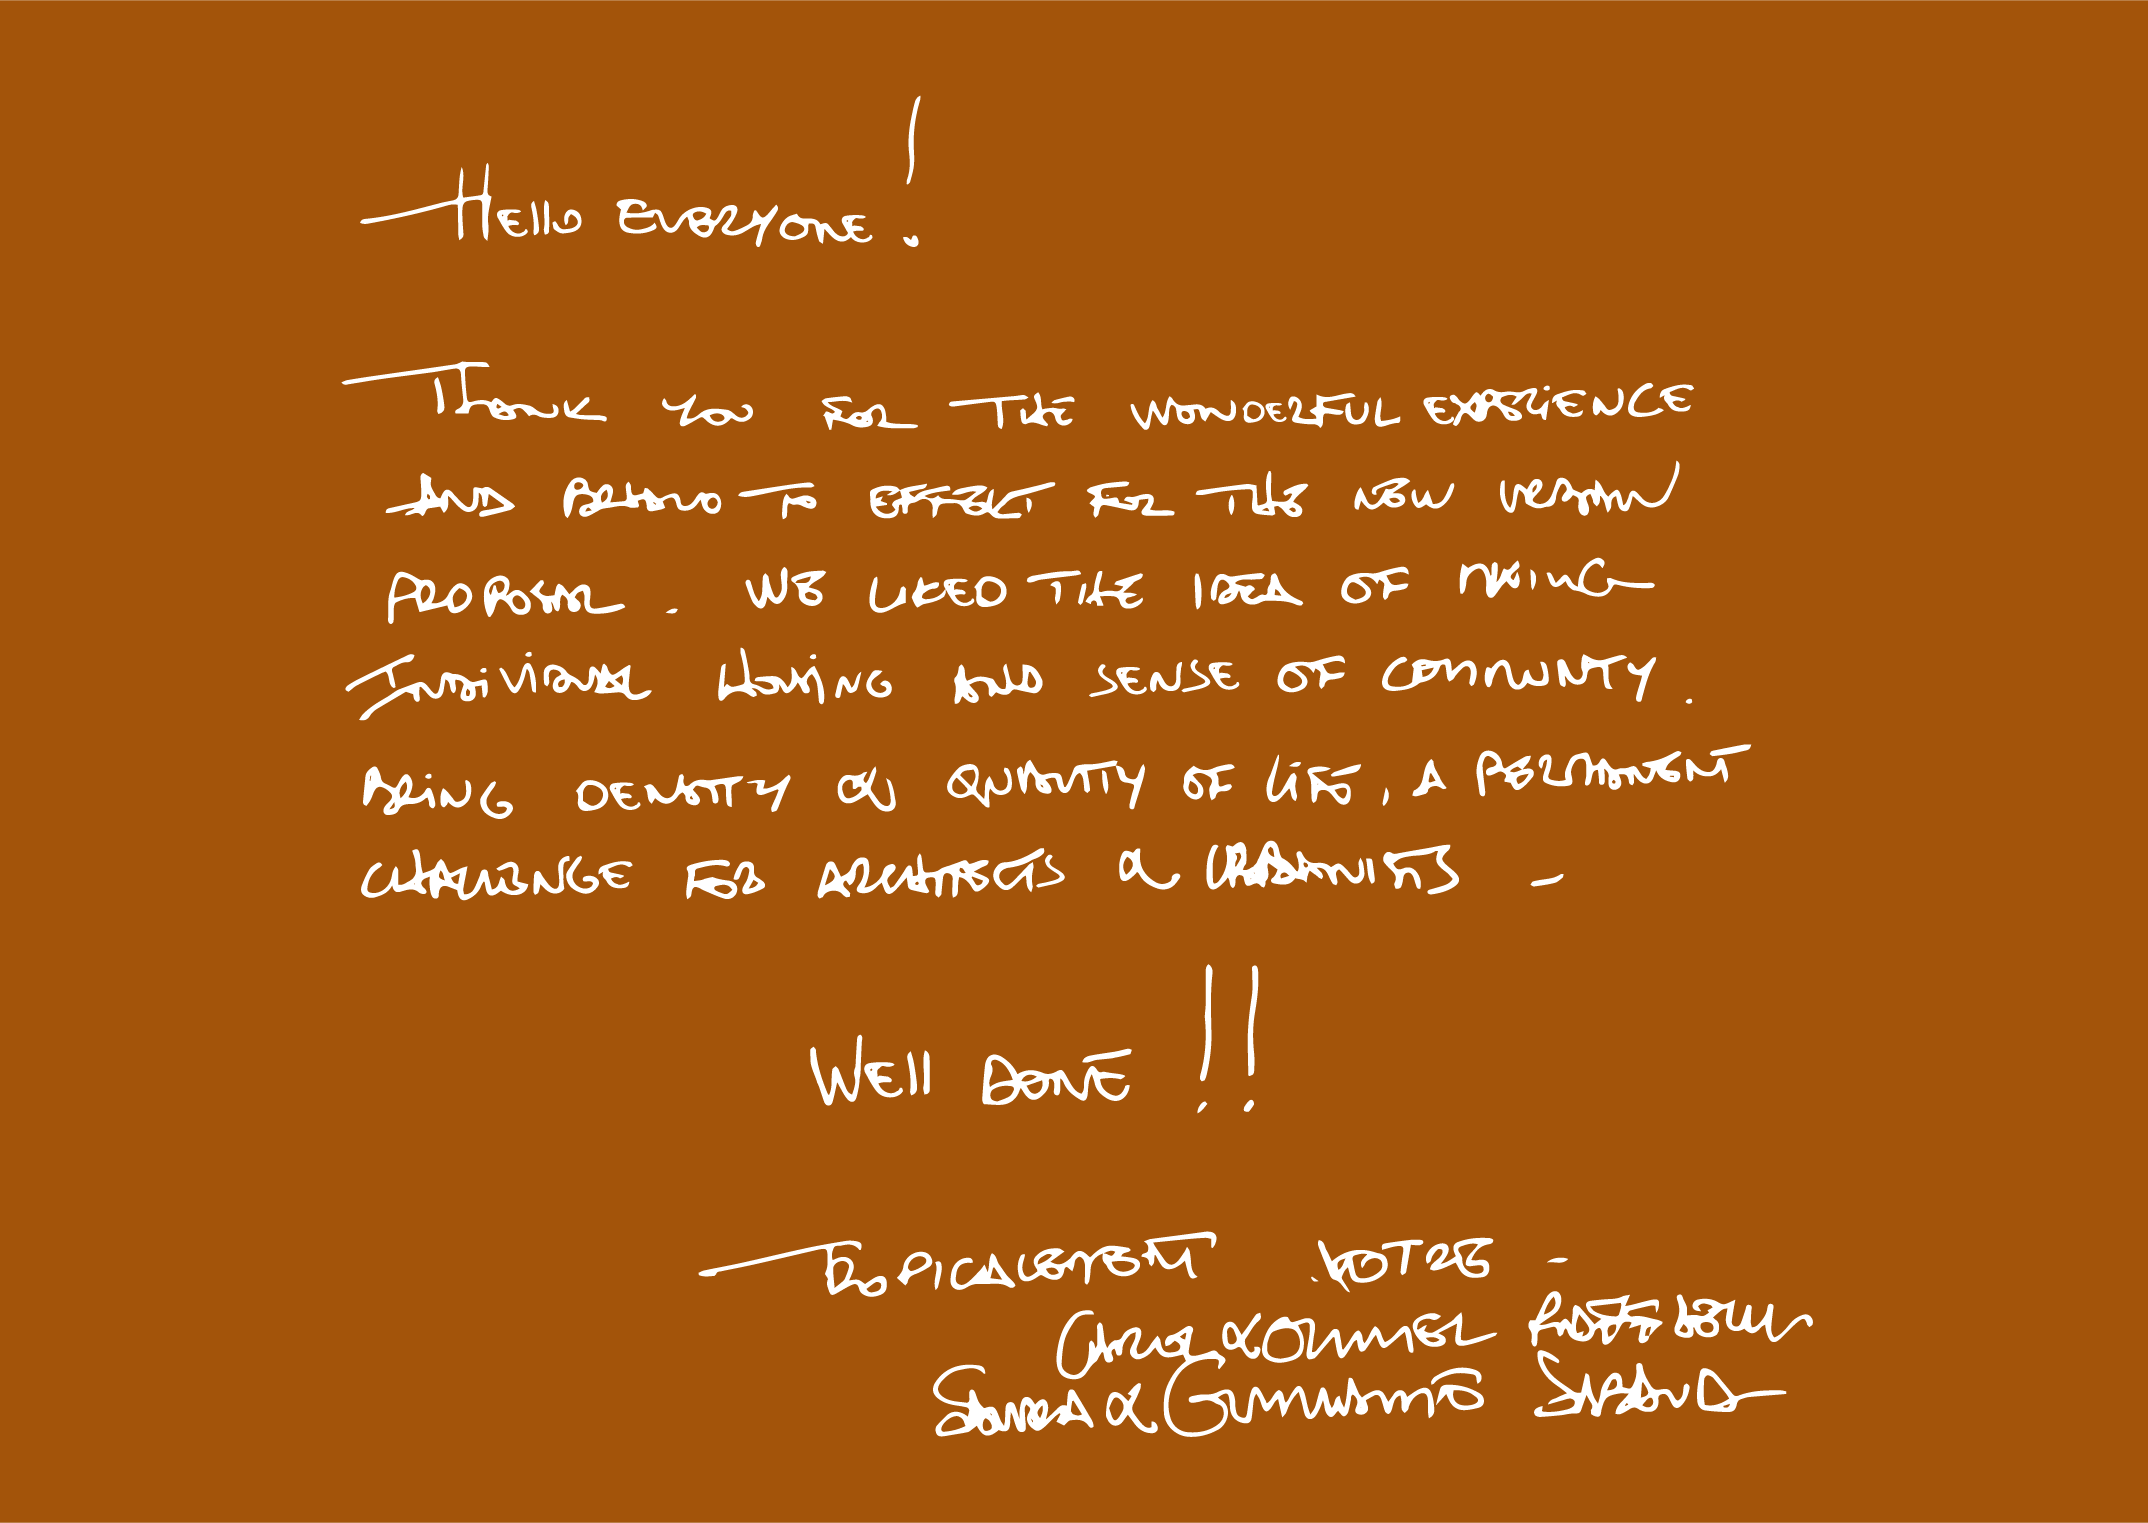 Hello EVERYONE!
THANK YOU FOR THE WONDERFUL EXPERIENCE
AND BRAVO TO EFFEKT FOR THE NEW URBAN
PROPOSAL. WE LIKED THE IDEA OF MIXING
INDIVIDUAL HOUSING AND SENSE OF COMMUNITY.
BRING DENSITY & QUANTITY OF LIFE, A PERMANENT
CHALLENGE FOR ARCHITECTS & URBANISTS -
WEll DONE !!
TROPICALEMENT VOTRE -
CAROL & OMMEL
SANDRA &